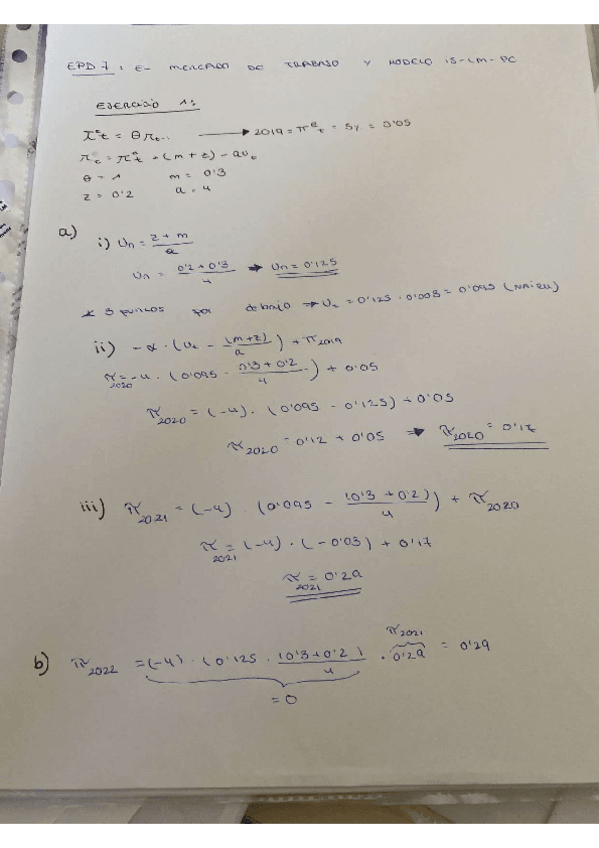 EPD 7: E- MERCADO DE TRABAJO Y MODELO IS-LM-PC
EJERCICIO 1:
π^e t = θ π t-1 → 2019 = π^e t = 5% = 0'05
π t = π^e t + (m+z) - αu t
θ = 1 m = 0'3
z = 0'2 a = 4
a)
i) Un = z + m / a
Un = 0'2 + 0'3 / 4 → Un = 0'125
* 3 puntos por debajo → U t = 0'125 - 0'003 = 0'095 (NAIRU)
ii) -α · (u t - (m+z) / a) + π 2019
π 2020 = -4 · (0'095 - 0'3 + 0'2 / 4) + 0'05
π 2020 = (-4) · (0'095 - 0'125) + 0'05
π 2020 = 0'12 + 0'05 → π 2020 = 0'17
iii) π 2021 = (-4) · (0'095 - (0'3 + 0'2) / 4) + π 2020
π 2021 = (-4) · (-0'03) + 0'17
π 2021 = 0'29
π 2021
b) π 2022 = (-4) · (0'125 · (0'3+0'2) / 4 · 0'29 = 0'29
= 0